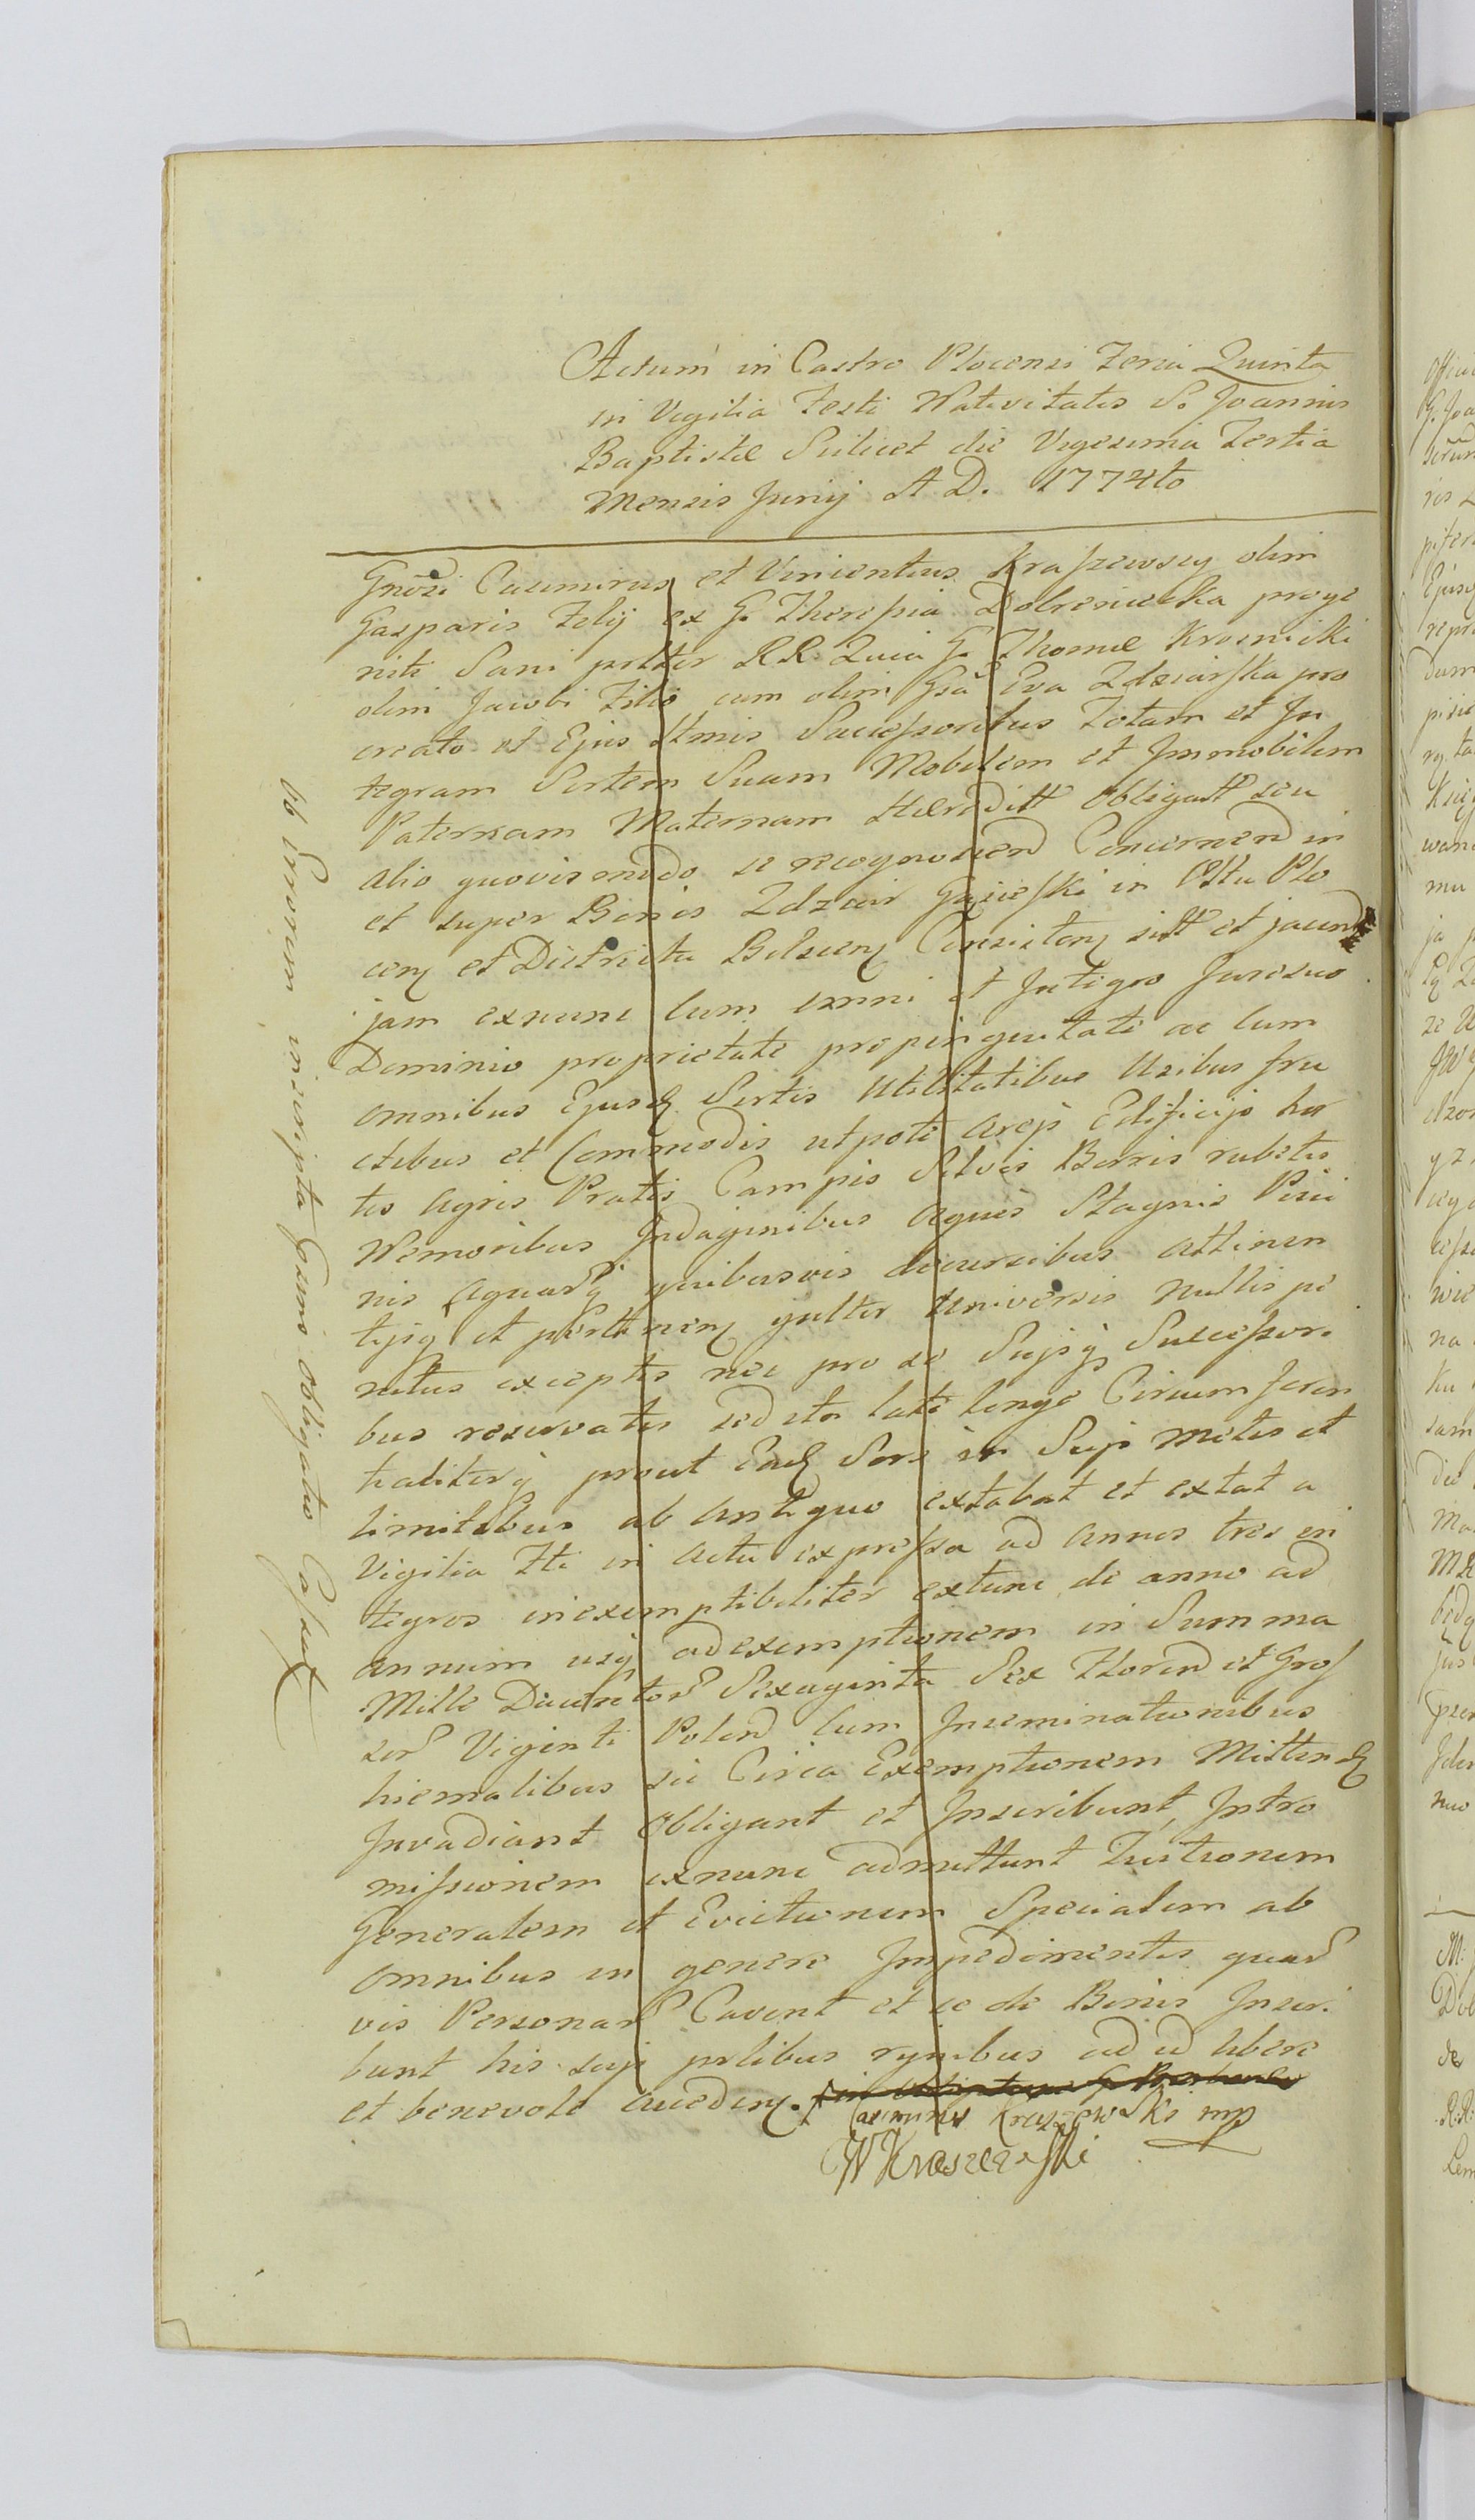 Actum in Castro Plocensi Feria Quinta
in Vigilia Festi Nativitatis S. Joannis
Baptistæ Scilicet die Vigesima Tertia
Mensis Junij A D. 1774to
Gnõsi Casimirus et Vincentius Kraszewscy olim
Gasparis Filij ex G. Theressia Dobrosielska proge
niti Sani prltter RR. Quia G. Thomæ Krosnicki
olim Jacobi Filio cum olim Gsã Eva Zdziarska pro
creato et Ejus Ltmis Successoribus Totam et In
tegram Sortem Suam Mobilem et Immobilem
Paternam Maternam Hæreditt Obligatt seu
alio quovis modo se recognoscend Concernend in
et super Bonis Zdziar Gąsiewski in Pttu Plo
cenȝ et Districtu Bielscenȝ Consistenȝ sitt et jacend
jam exnunc Cum omni et Integro Jure suo
Dominio proprietate propinquitate ac Cum
omnibus Ejusd Sortis Utilitatibus Usibus fru
ctibus et Commodis utpote areȷs Edificijs hor
tis Agris Pratis Campis Silvis Borris rubetis
Nemoribus Indaginibus Aquis Stagnis Pisci
nis Aquarq quibusvis decursibus attinen
tijsq et perttinenȝ gnlter Universis nullis pe
nitus exceptis nec pro se Suisq Successori
bus reservatis sed ita late longe Circumferen
tialiterq prout Ead Sors in Suis metis et
limitibus ab antiquo extabat et extat a
Vigilia Fti in Actu expressa ad annos tres in
tegros inexemptibiliter extunc de anno ad
annum usq ad exemptionem in Summa
Mille Ducentor Sexaginta Sex Florend et Gros
sor Viginti Polond Cum Inseminationibus
hiemalibus sic Circa Exemptionem Mittend
Invadiant Obligant et Inscribunt, Intro
missionem exnunc admittunt Tuitionem
Generalem et Evictionem Specialem ab
omnibus in genere Impedimentis quar
vis Personar Cavent et se de Bonis Inscri
bunt his suis prlibus rgnibus ad id libere
et benevole acceden.
Casimirus Kraszewski mp
W Kraszewski
Ob Errorem inscripta Gsum Obligatio Cassat